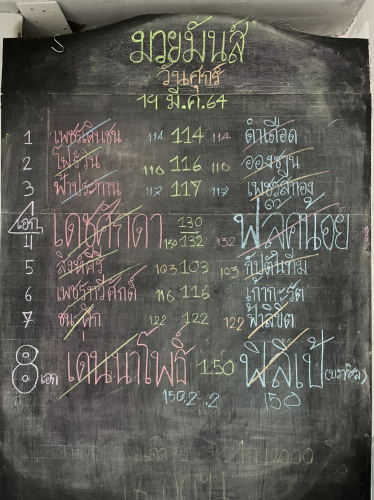 มวยมันส์
วันศุกร์
19 มี.ค.64
1 เพชรเดิมชน 114 114 114 ดำเดือด
2 โฟร์วัน 116 116 116
3 ฟ้าประทาน 117 117 117 เพชรสีทอง
4 เอก เดชศักดา 130 130 132 132 ฟลุ๊คน้อย
5 สิงห์ศิริ 103 103 103 กัปตันทีม
6 เพชรทวีศักดิ์ 116 116 เก้ากะรัต
7 122 122 122 ฟ้าลิขิต
8 เอก เดนนาโพธิ์ 150 ฟิลิเป้ (บราซิล)
150.2-.2 150